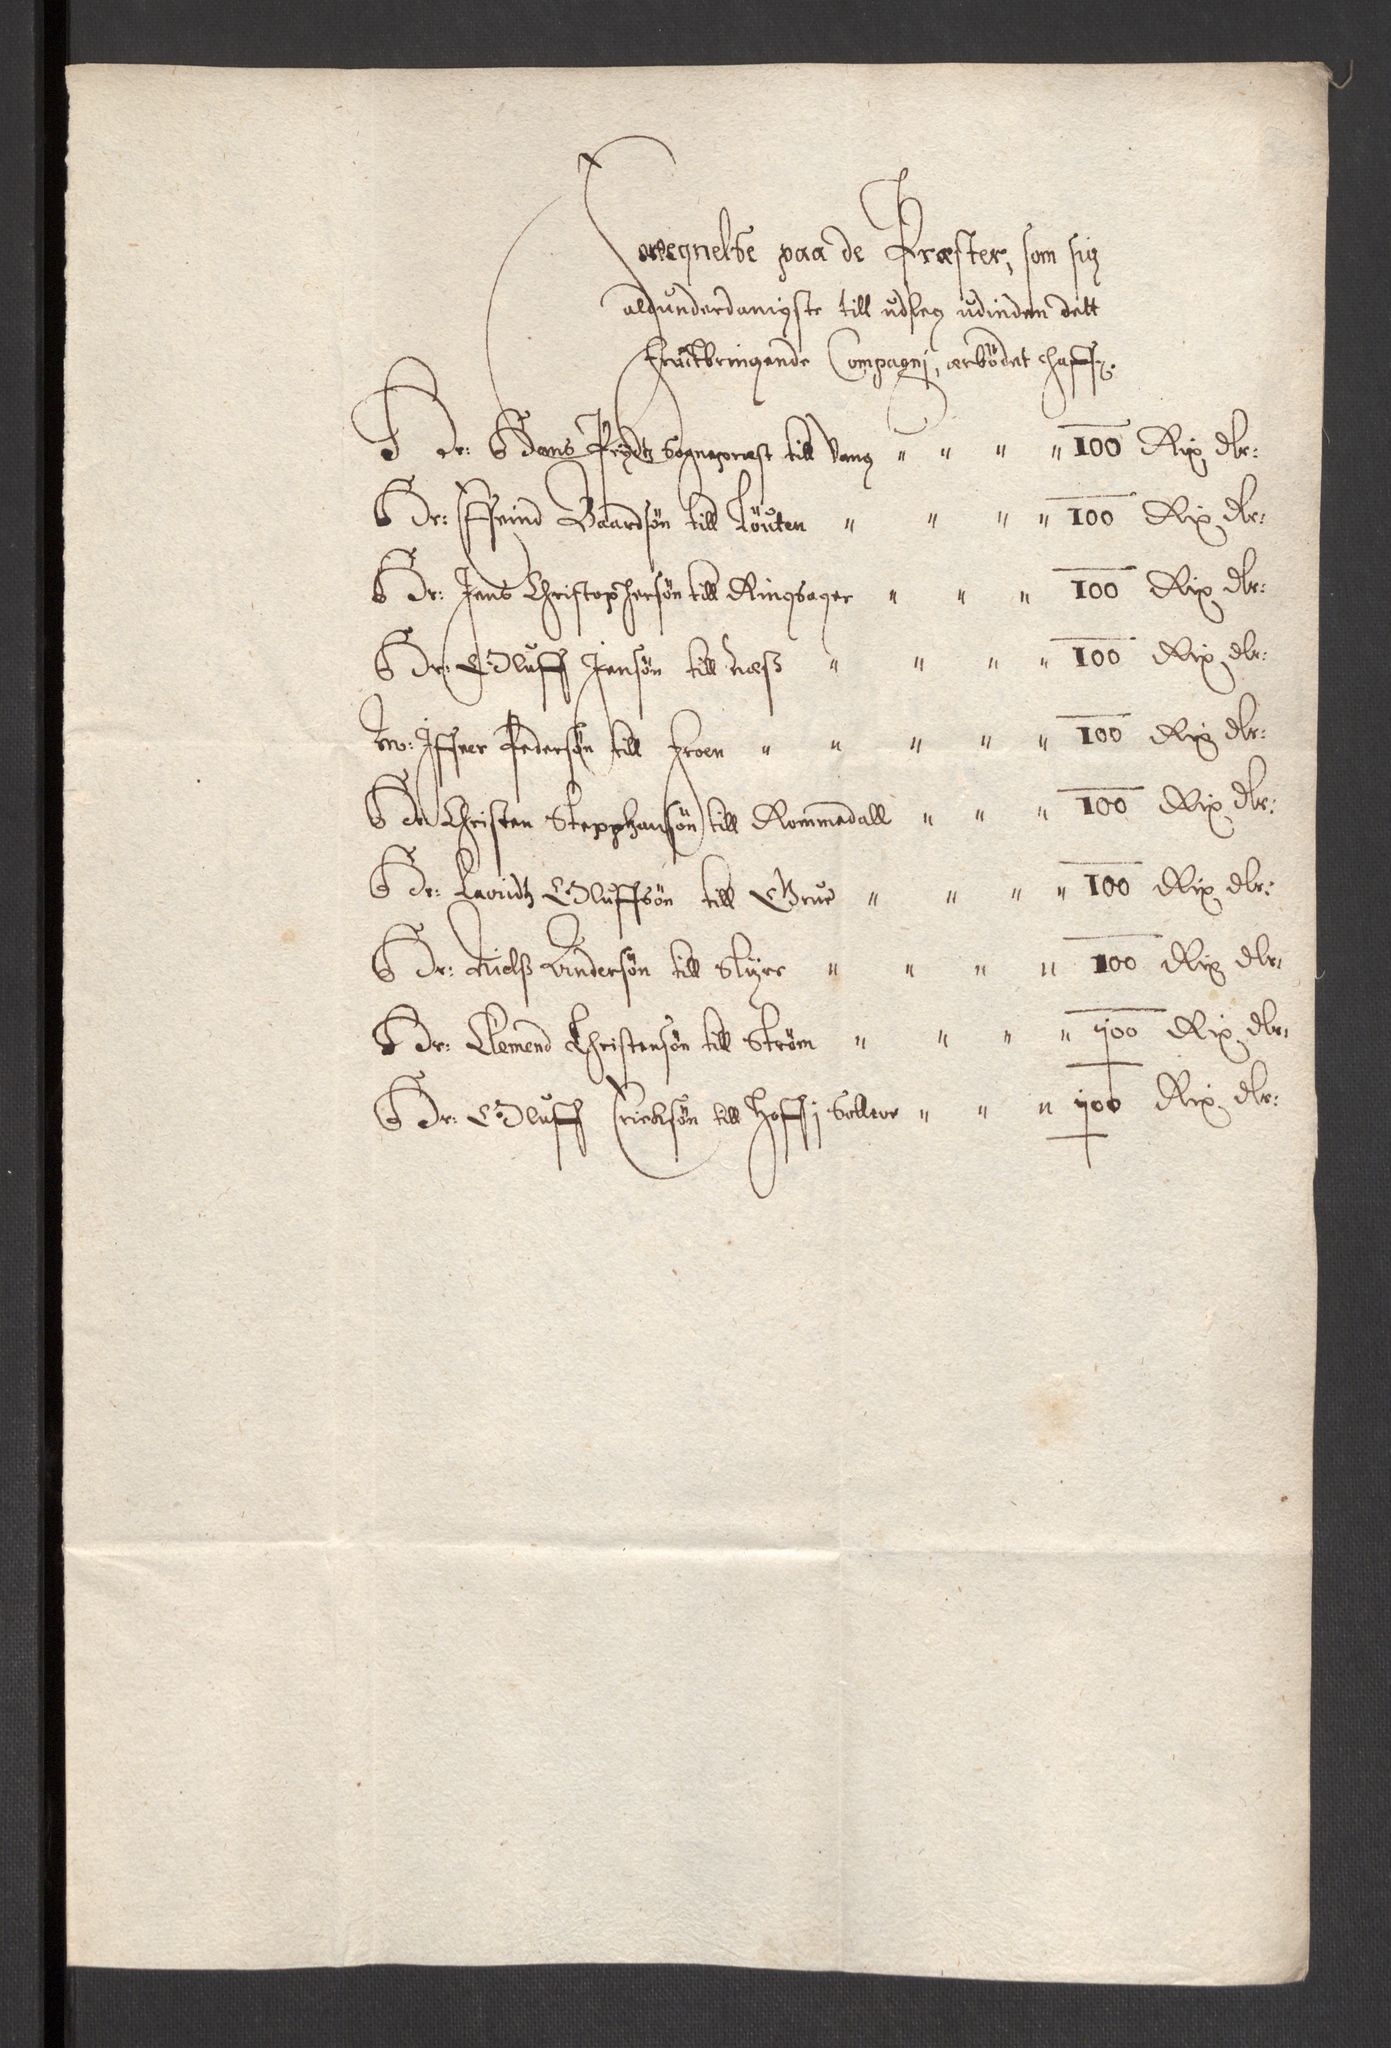 Fortegnelse paa de Præster, som sig
aldunderdanigste till udleg udinden dett
fruktbringende Compagnj, ærbödet haffr.
Hr: Hans Sognepræst till Vang " " " " 100 Rix dlr:
Hr: Effvind Baardsön till Löuten " " " " 100 Rix dlr:
Hr: Jens Christophersön till Ringsager " " " 100 Rix dlr:
Hr: Oluff Jensön till Næss " " " " 100 Rix dlr:
Hr: Iffuer Pedersön till Froen " " " " " 100 Rix dlr:
Hr Christen Stepphansön till Rommedall " " " 100 Rix dlr:
Hr: Lauridtz Oluffsön till Grue " " " " 100 Rix dlr:
Hr: Nielss Andersön till Slyre " " " " 100 Rix dlr:
Hr: Clemend Christensön till Ström " " " " 100 Rix dlr:
Hr: Oluff Ericksön till Hoff j Solleur " " " 100 Rix dlr: